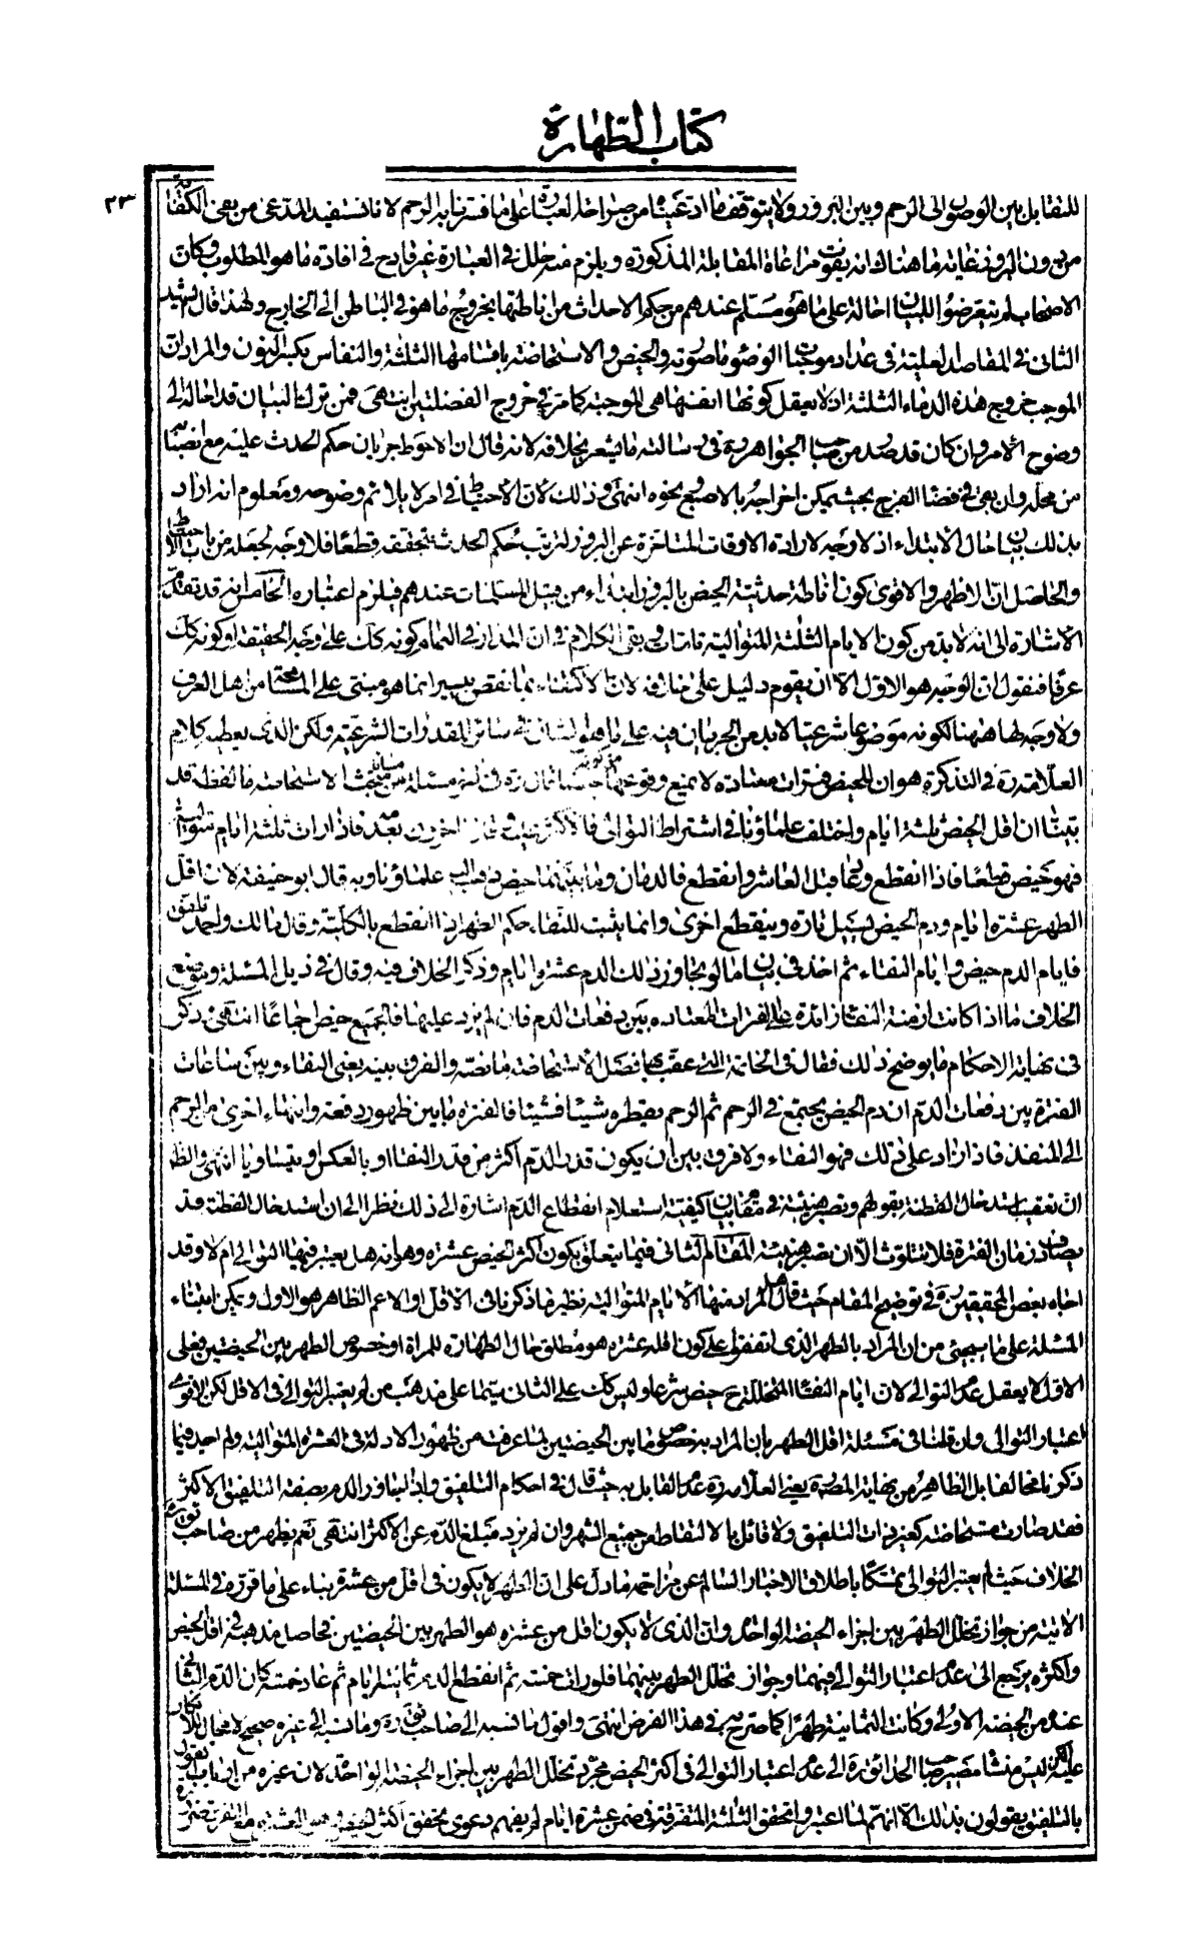 كتاب الطهارة
٢٣
للتقابل بين الوصول الى الرحم وبين البروز ولا يتوقف ما ادعيناه من صراحة العبارة على ما فسرنا به الرحم لانا نستفيد المدعى من نفى الكفاية
من دون البروز غاية ما هناك انه يفوت مراعاة المقابلة المذكورة ويلزم منه خلل فى العبارة غير قادح فى افادة ما هو المطلوب وكان
الاصحاب لم يتعرضوا للبيان احالة على ما هو مسلم عندهم من حكم الاحداث من اناطتها بخروج ما هو فى الباطن الى الخارج ولهذا قال الشهيد
الثانى فى المقاصد العلية فى عداد موجبات الوضوء ما صورته والحيض والاستحاضة باقسامها الثلثة والنفاس بكسر النون والمراد ان
الموجب خروج هذه الدماء الثلثة اذ لا يعقل كونها انفسها هى الموجبة كما مر فى خروج الفضلتين انتهى فمن ترك البيان قد احاله الى
وضوح الامر وان كان قد صدر من صاحب الجواهر ره فى رسالته ما يشعر بخلافه لانه قال ان الاحوط جريان حكم الحدث عليه مع انصبابه
من محله وان بقى فى فضاء الفرج بحيث يمكن اخراجه بالاصبع ونحوه انتهى وذلك لان الاحتياط فى امر لا يلائم وضوحه ومعلوم انه اراد
بذلك بيان حال الابتداء اذ لا وجه لارادة الاوقات المتاخرة عن البروز لترتب حكم الحدث بتحققه قطعًا فلا وجه لجعله من باب الاحتياط
والحاصل ان الاظهر والاقوى كون اناطة حدثية الحيض بالبروز ابتداء من قبيل المسلمات عندهم فيلزم اعتباره الخامس انه قد تقدم
الاشارة الى انه لا بد من كون الايام الثلثة المتوالية تامات وبقى الكلام فى ان المدار فى التمام كونه كك على وجه الحقيقة او كونه كك
عرفا فنقول ان الوجه هو الاول الا ان يقوم دليل على خلافه لان الاكتفاء بما نقص بيسير انما هو مبنى على المسامحة من اهل العرف
ولا وجه لها ههنا لكونه موضوعا شرعيا لا بد من الجريان فيه على ما هو الشان فى سائر المقدرات الشرعية ولكن الذى يعطيه كلام
العلامة ره فى التذكرة هو ان للحيض فترات معتادة لا يمنع وقوعها قال ره فى مسئلة من مبحث الاستحاضة ما لفظه قد
بيّنّا ان اقل الحيض ثلثة ايام واختلف علماؤنا فى اشتراط التوالى فالاكثر عليه فاذا رات ثلثة ايام متوالية
فهو حيض قطعًا فاذا انقطع وعاد قبل العاشر وانقطع فالدمان وما بينهما حيض ذهب اليه علماؤنا وبه قال ابو حنيفة لان اقل
الطهر عشرة ايام ودم الحيض يسيل تارة وينقطع اخرى وانما يثبت للنقاء حكم الطهر اذا انقطع بالكلية وقال مالك واحمد تلفيق
فايام الدم حيض وايام النقاء ثم اخذ فى بيان ما لو تجاوز ذلك الدم عشرة ايام وذكر الخلاف فيه وقال فى ذيل المسئلة وموضع
الخلاف ما اذا كانت ازمنة النقاء زائدة على الفترات المعتادة بين دفعات الدم فان لم يزد عليها فالجميع حيض اجماعًا انتهى وذكر
فى نهاية الاحكام ما يوضح ذلك فقال فى الخاتمة التى عقب بها فصل الاستحاضة ما نصه والفرق بينه يعنى النقاء وبين ساعات
الفترة بين دفعات الدم ان دم الحيض يجتمع فى الرحم ثم الرحم يقطره شيئا فشيئا فالفترة ما بين ظهور دفعة وانتهاء اخرى من الرحم
الى المنفذ فاذا زاد على ذلك فهو النقاء ولا فرق بين ان يكون قدر الدم اكثر من قدر النقاء او بالعكس او يتساويا انتهى والظ
ان تعقيب استدخال القطنة بقولهم وتصبر هنيئة فى مقام بيان كيفية استعلام انقطاع الدم اشارة الى ذلك نظرا الى ان استدخال القطنة قد
يصادف زمان الفترة فلا تتلوث الا ان تصبر هنيئة المقام الثانى فيما يتعلق بكون اكثر الحيض عشرة وهو انه هل يعتبر فيها التوالى ام لا وقد
اجاد بعض المحققين ره فى توضيح المقام حيث قال هل المراد منها الايام المتوالية نظير ما ذكرنا فى الاقل او الاعم الظاهر هو الاول ويمكن ابتناء
المسئلة على ما سيجئ من ان المراد بالطهر الذى اتفقوا على كون اقله عشرة هو مطلق حال الطهارة للمراة او خصوص الطهر بين الحيضتين فعلى
الاول لا يعقل عدم التوالى لان ايام النقاء المتخللة ح حيض شرعا وليس كك على الثانى سيّما على مذهب من لم يعتبر التوالى فى الاقل لكن الاقوى
اعتبار التوالى وان قلنا فى مسئلة اقل الطهر بان المراد به خصوص ما بين الحيضتين لما عرفت من ظهور الادلة فى العشرة المتوالية ولم اجد فيما
ذكرنا مخالفا بل الظاهر من نهاية المص ره يعنى العلامة ره عدم القائل به حيث قال فى احكام التلفيق واذا تجاوز الدم بصفة التلفيق الاكثر
فقد صارت مستحاضة كغير ذات التلفيق ولا قائل بالالتقاط من جميع الشهر وان لم يزد مبلغ الدم عن الاكثر انتهى نعم يظهر من صاحب ئق
الخلاف حيث لم يعتبر التوالى متمسكًا باطلاق الاخبار السالم عن مزاحمة ما دل على ان الطهر لا يكون فى اقل من عشرة بناء على ما قرره فى المسئلة
الاتية من جواز تخلل الطهر بين اجزاء الحيضة الواحدة وان الذى لا يكون اقل من عشرة هو الطهر بين الحيضتين فحاصل مذهبه فى اقل الحيض
واكثره يرجع الى عدم اعتبار التوالى فيهما وجواز تخلل الطهر بينهما فلو رات خمسة ثم انقطع الدم ثمانية ايام ثم عاد خمسة كان الدم الثانى
عنده من الحيضة الاولى وكانت الثمانية طهرًا كما صرح به فى هذا الفرض انتهى واقول ما نسبه الى صاحب ئق ره وما نسبه الى غيره صحيح لا مجال للانكار
عليه لكن ليس منشا مصير صاحب الحدائق ره الى عدم اعتبار التوالى فى اكثر الحيض مجرد تخلل الطهر بين اجزاء الحيضة الواحدة لان غيره من ارباب القول
بالتلفيق يقولون بذلك الا انهم لما اعتبروا تحقق الثلثة المتفرقة فى ضمن عشرة ايام لم يفهم دعوى تحقق اكثر الحيض